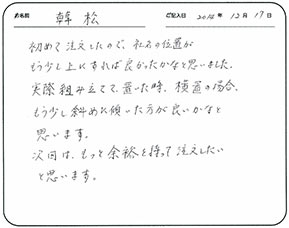 お名前 幹 松 ご記入日 2014年 12月 17日
初めて注文したので、社名の位置が
もう少し上にすれば良かったかなと思いました。
実際組み立てて、置いた時、横置の場合、
もう少し斜めに傾いた方が良いかなと
思います。
次回は、もっと余裕を持って注文したい
と思います。